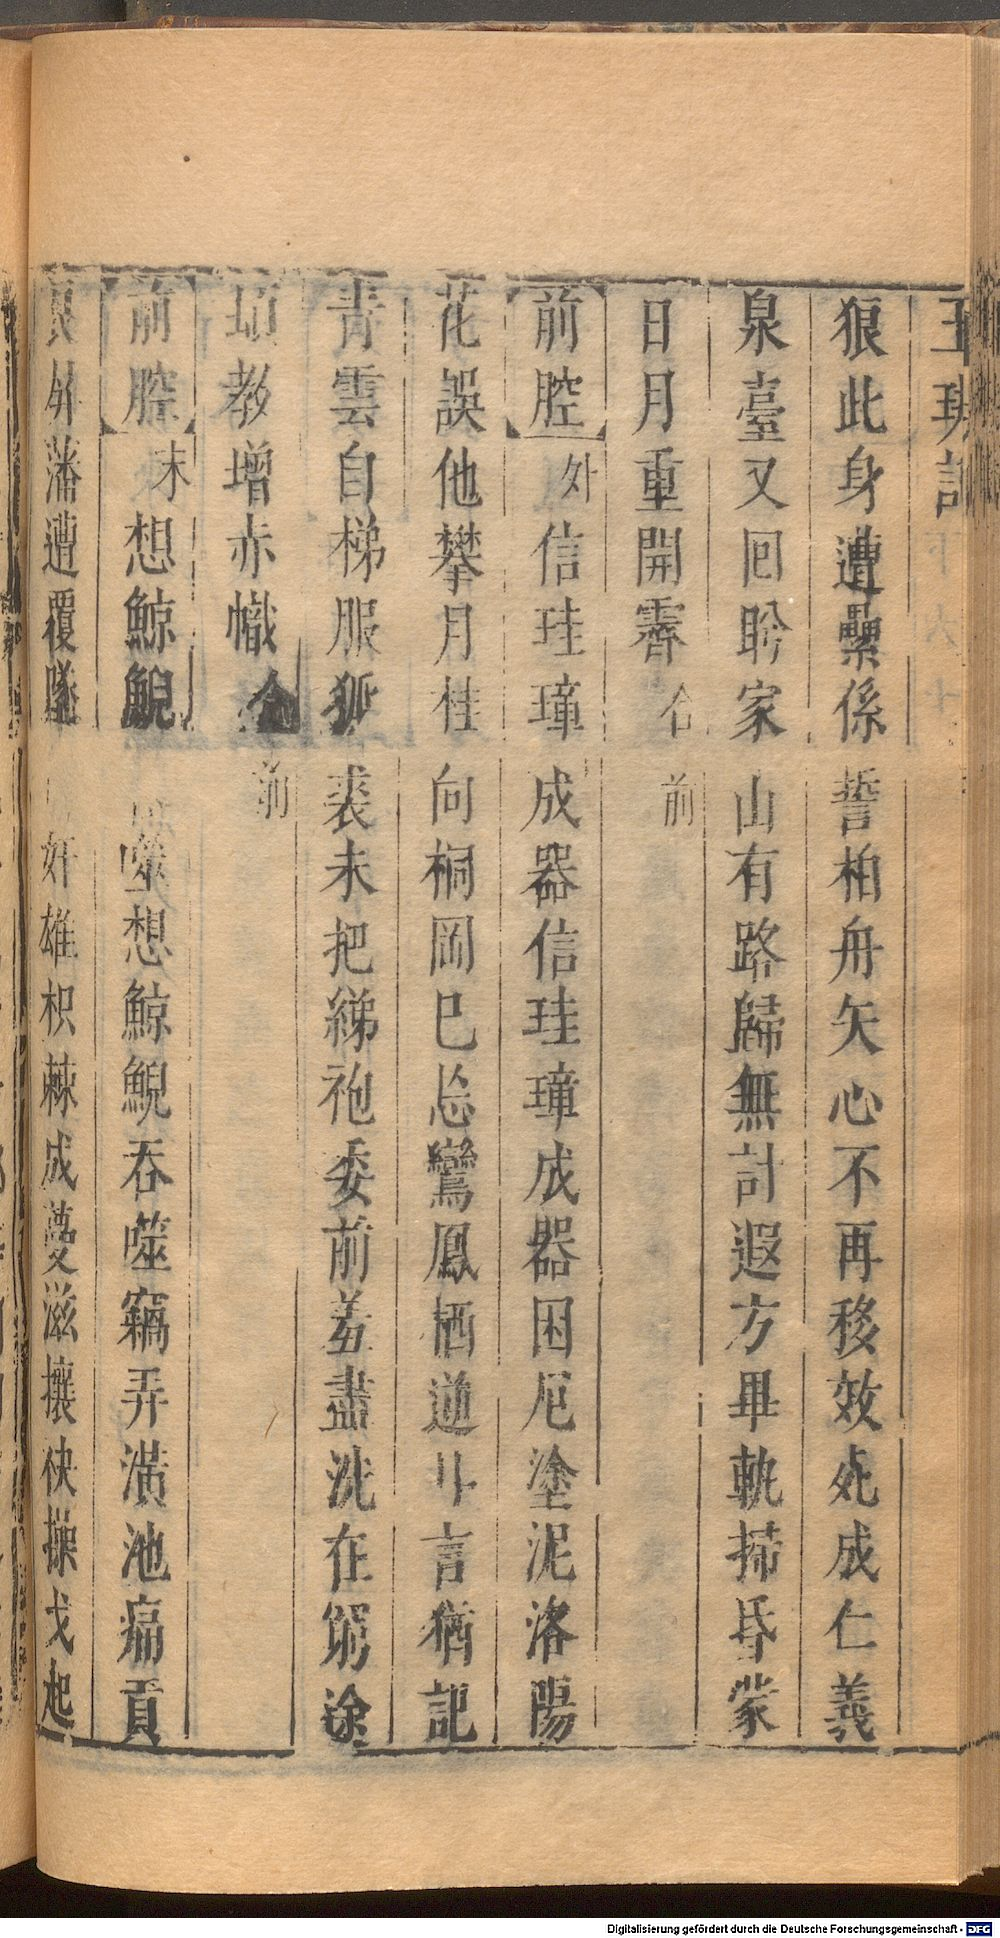 狼此身遭纍係誓柏舟矢心不再移效死成仁義
泉臺又回盻家山有路歸無計遐方畢軌掃昏蒙
日月重開霽合前
前腔外信珪璋成器信珪璋成器困厄塗泥洛陽
花誤他攀月桂向桐岡已忘鸞鳳栖逆斗言猶記
青雲自梯服狐裘未把綈袍委前羞盡洗在窮途
教增赤幟合前
前腔末想鯨鯢吞噬想鯨鯢吞噬竊弄潢池痛貢
藩遭覆墜奸雄枳棘成蔓滋攘袂操戈起
Digitalisierung gefördert durch die Deutsche Forschungsgemeinschaft - DFG